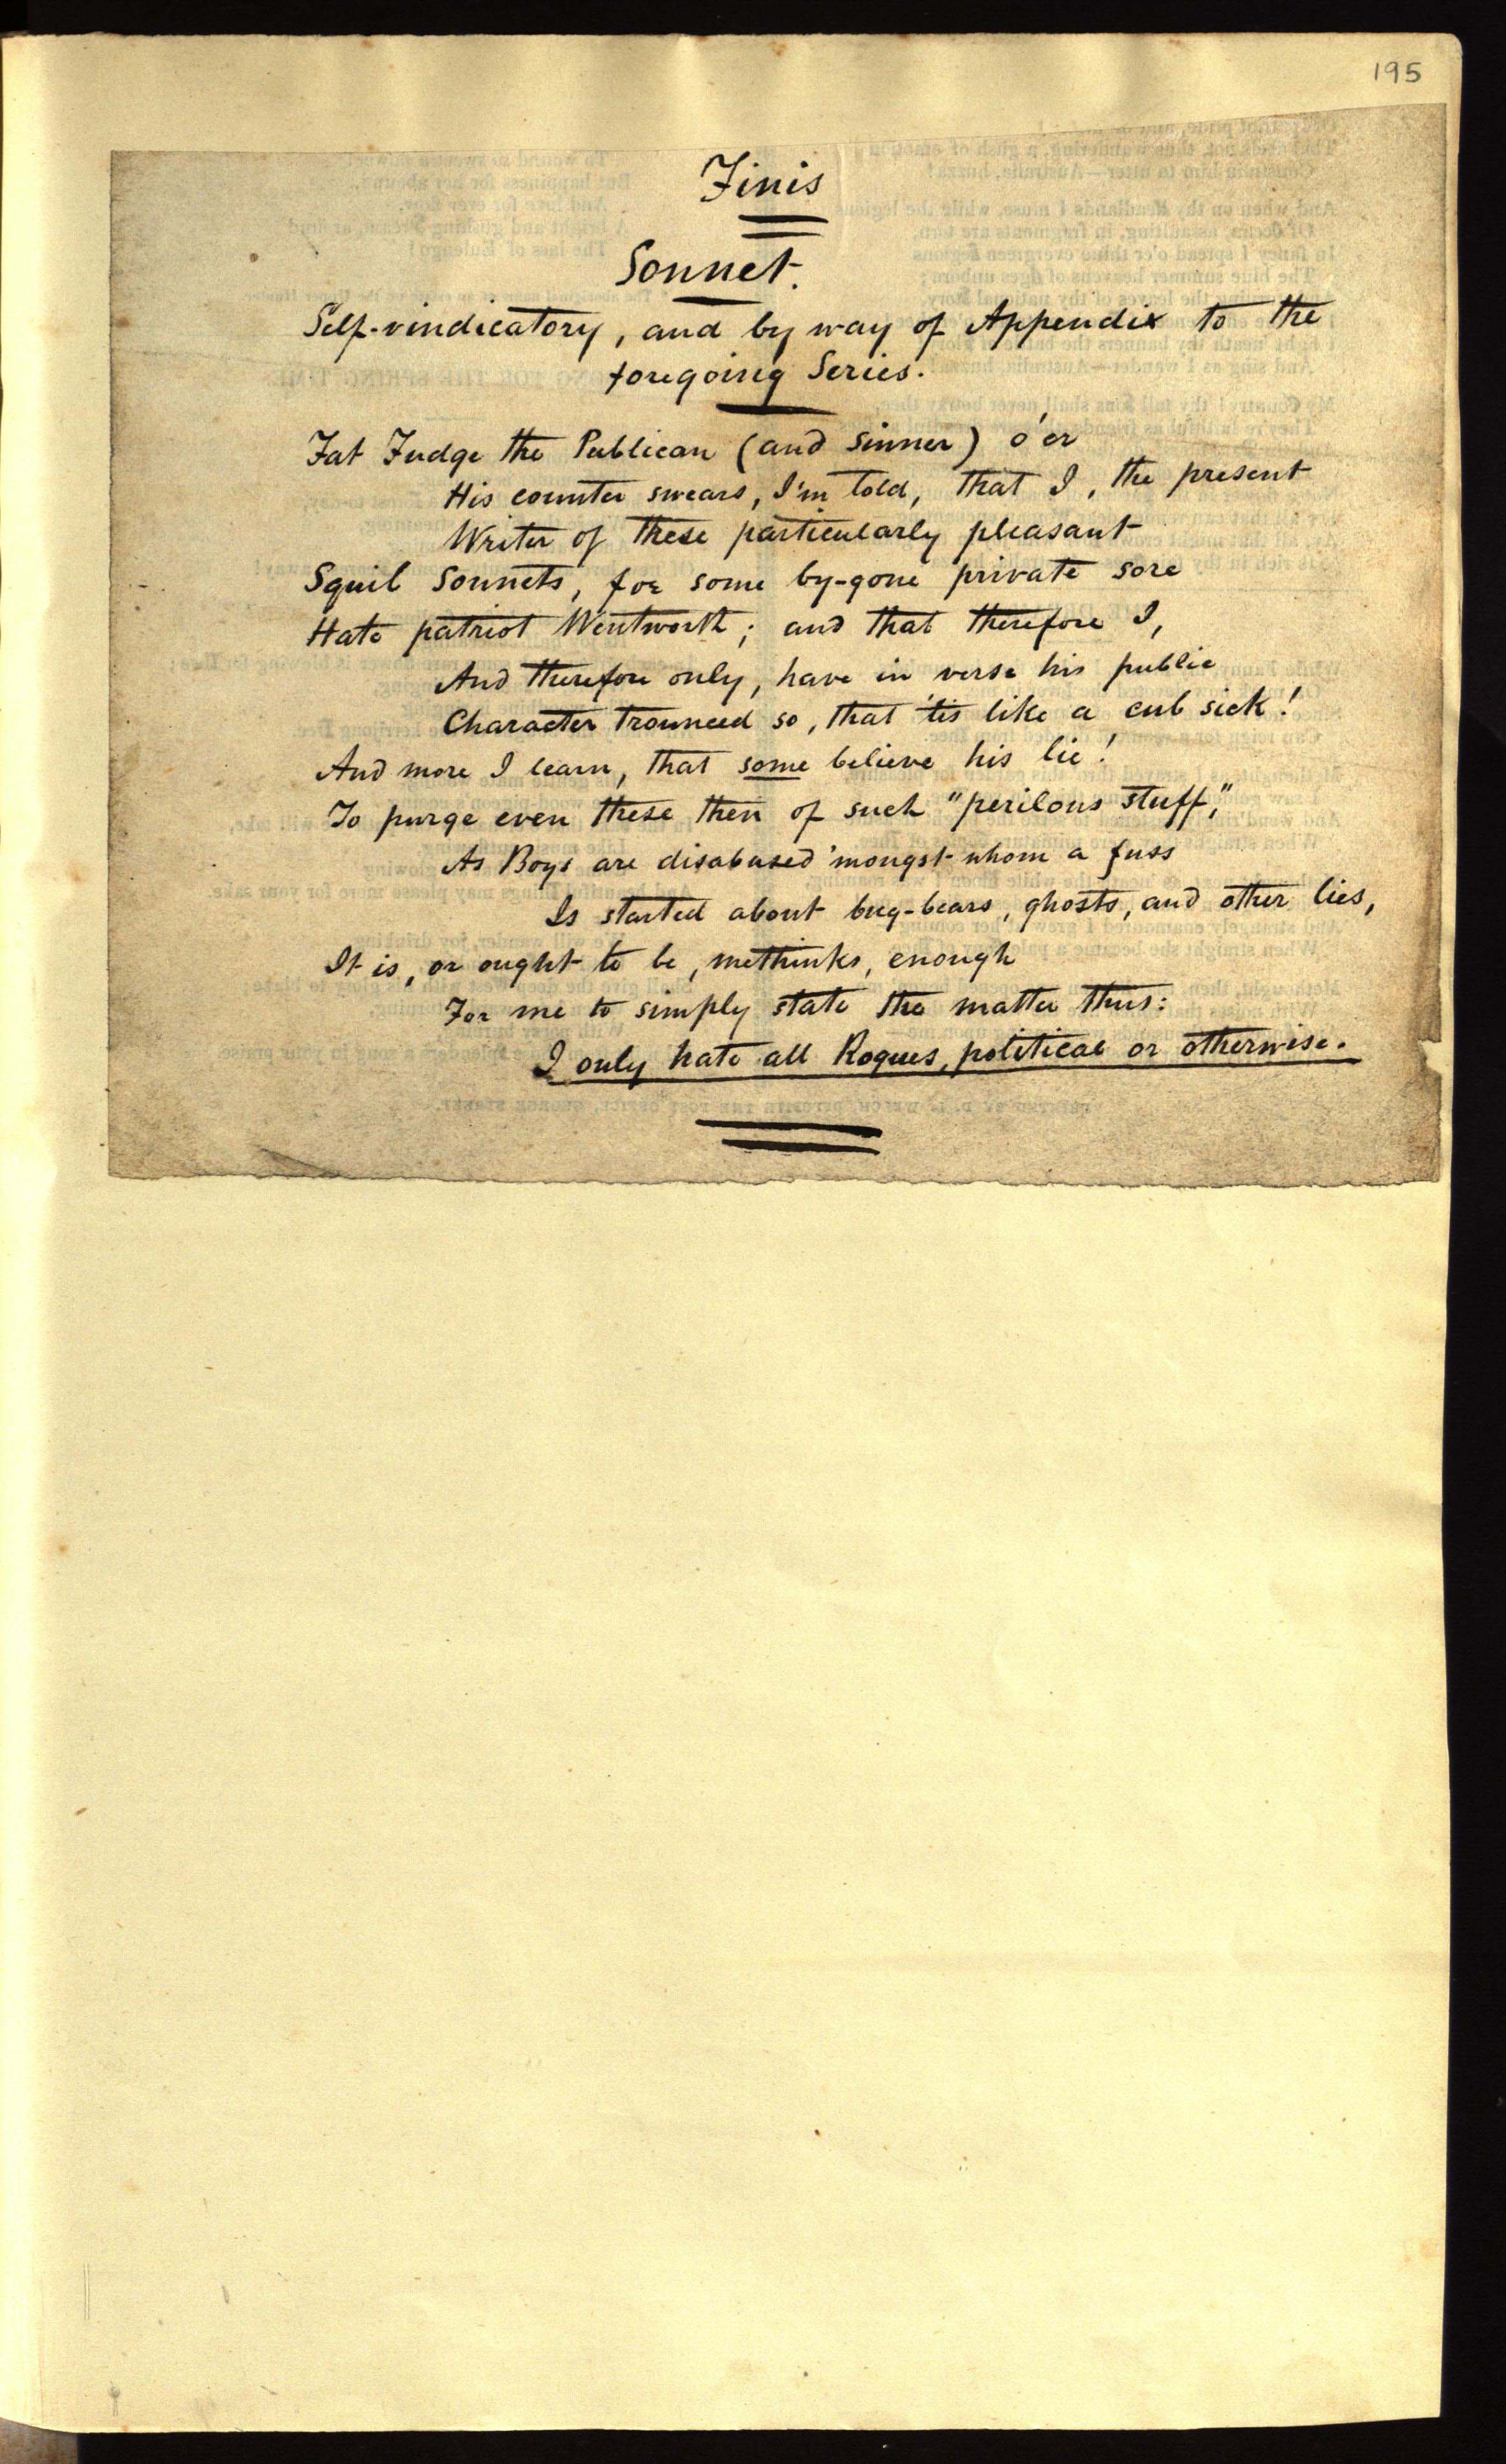 195
Finis
Sonnet.
Self-vindicatory, and by way of Appendix to the
foregoing Series.
Fat Fudge the Publican (and Sinner) o'er
His counter swears, I'm told, that I, the present
Writer of these particularly pleasant
Squib Sonnets, for some by-gone private sore
Hate patriot Wentworth; and that therefore I,
And therefore only, have in verse his public
Character trounced so, that 'tis like a cub sick!
And more I learn, that some believe his lie!
To purge even these then of such "perilous stuff,"
As Boys are disabused 'mongst whom a fuss
Is started about bug-bears, ghosts, and other lies,
It is, or ought to be, methinks, enough
For me to simply state the matter thus:
I only hate all Rogues, political or otherwise.